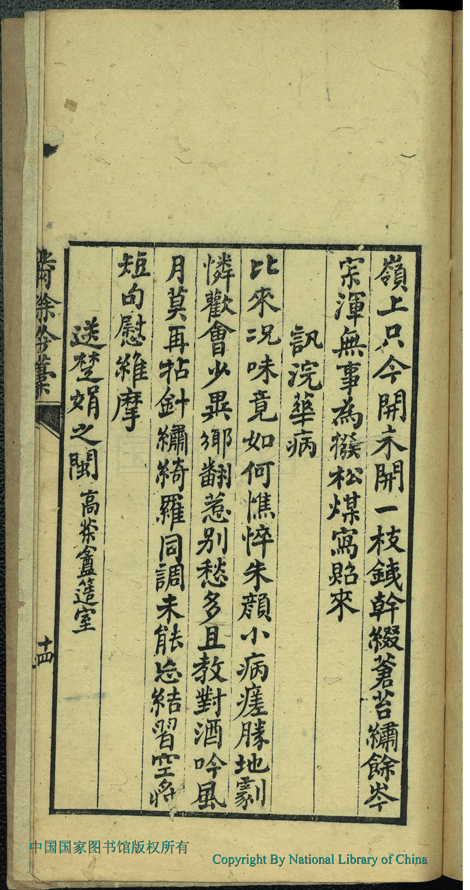 嶺上只今開未開一枝鐵幹綴蒼苔繡餘岑
寂渾無事為撥松煤寫貽來
訊浣華病
比來况味竟如何憔悴朱顏小病瘥勝地劇
憐歡會少異鄉翻惹別愁多且教對酒吟風
月莫再拈針繡綺羅同調未能忘結習空將
短句慰維摩
送楚娟之閩高茶盦簉室
繡餘吟藁
十四
中国国家图书馆版权所有
Copyright By National Library of China